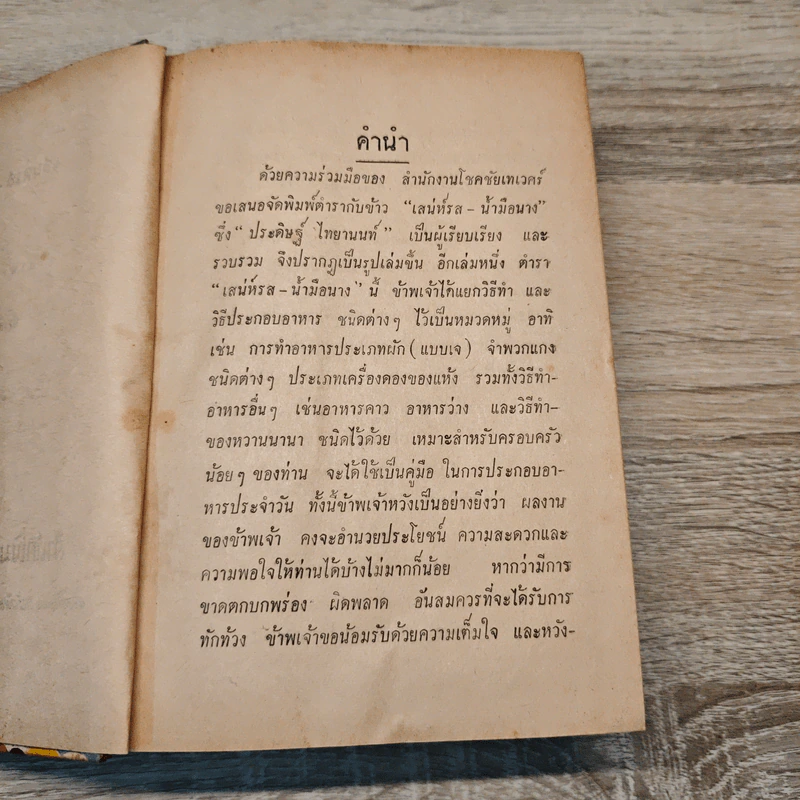 คำนำ
ด้วยความร่วมมือของ สำนักงานโชคชัยเทเวศร์
ขอเสนอจัดพิมพ์ตำรากับข้าว “เสน่ห์รส - น้ำมือนาง”
ซึ่ง “ ประดิษฐ์ ไทยานนท์ ” เป็นผู้เรียบเรียง และ
รวบรวม จึงปรากฏเป็นรูปเล่มขึ้น อีกเล่มหนึ่ง ตำรา
“เสน่ห์รส - น้ำมือนาง” นี้ ข้าพเจ้าได้แยกวิธีทำ และ
วิธีประกอบอาหาร ชนิดต่างๆ ไว้เป็นหมวดหมู่ อาทิ
เช่น การทำอาหารประเภทผัก (แบบเจ) จำพวกแกง
ชนิดต่างๆ ประเภทเครื่องดองของแห้ง รวมทั้งวิธีทำ-
อาหารอื่นๆ เช่นอาหารคาว อาหารว่าง และวิธีทำ-
ของหวานนานา ชนิดไว้ด้วย เหมาะสำหรับครอบครัว
น้อยๆ ของท่าน จะได้ใช้เป็นคู่มือ ในการประกอบอา-
หารประจำวัน ทั้งนี้ข้าพเจ้าหวังเป็นอย่างยิ่งว่า ผลงาน
ของข้าพเจ้า คงจะอำนวยประโยชน์ ความสะดวกและ
ความพอใจให้ท่านได้บ้างไม่มากก็น้อย หากว่ามีการ
ขาดตกบกพร่อง ผิดพลาด อันสมควรที่จะได้รับการ
ทักท้วง ข้าพเจ้าขอน้อมรับด้วยความเต็มใจ และหวัง-